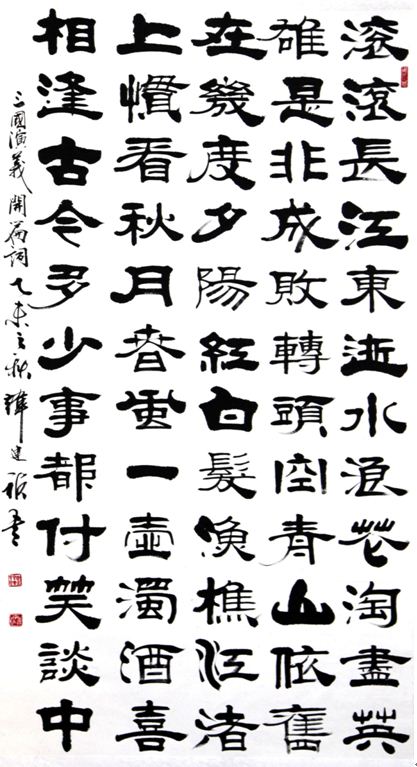 滚滚長江東逝水浪花淘盡英
雄是非成敗轉頭空青山依舊
在幾度夕陽紅白髮漁樵江渚
上慣看秋月春風一壺濁酒喜
相逢古今多少事都付笑談中
三國演義開篇詞乙未之秋建書